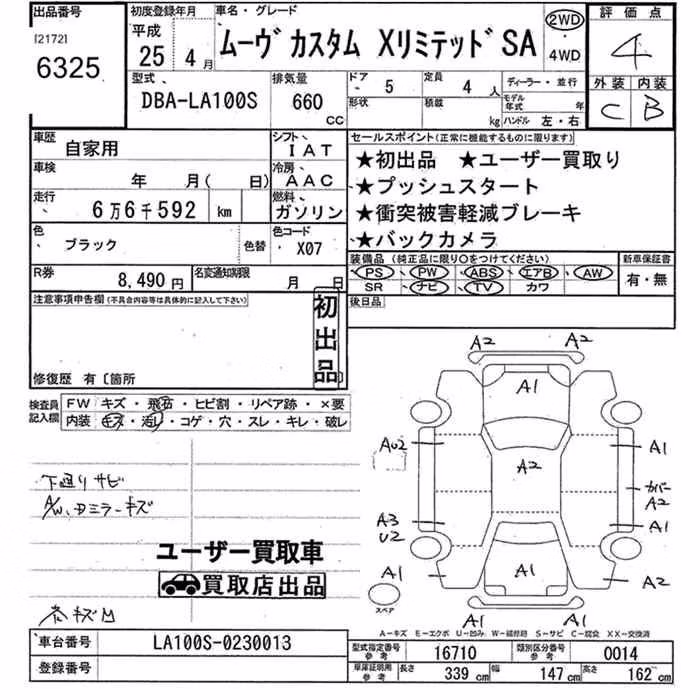 出品番号 初度登録年月 車名・グレード 評価点
[2172] 平成 ムーヴ カスタム XリミテッドSA 2WD
6325 25年 4月 4WD 4
型式 排気量 ドア 5 定員 4人 ディーラー・並行 外装 内装
DBA-LA100S 660 CC 形状 積載 kg モデル年式 年 C B
ハンドル 左・右
車歴 自家用 シフト IAT セールスポイント(正常に機能するものに限ります)
車検 年 月( 日) 冷房 AAC ★初出品 ★ユーザー買取り
走行 6万6千592 km 燃料 ガソリン ★プッシュスタート
色 ブラック 色替 色コード X07 ★衝突被害軽減ブレーキ
★バックカメラ
R券 8,490円 名変通知期限 月 日 装備品(純正品に限り○をつけてください) 新車保証書
PS PW ABS エアB AW 有・無
SR ナビ TV カワ
注意事項申告欄(不具合内容等は具体的に記入して下さい) 後日品
初出品
修復歴 有〔箇所 〕
検査員記入欄 FW キズ・飛石・ヒビ割・リペア跡・×要
内装 キズ・汚レ・コゲ・穴・スレ・キレ・破レ
A2 A2
A1
AU2 A1
A2
カバー A2
A3 U2 A1
A1 A1 A2
スペア
A1 A1
下廻りサビ
A/W、Dミラーキズ
ユーザー買取車
買取店出品
A-キズ E-エクボ U-凹み W-補修跡 S-サビ C-腐食 XX-交換済
車台番号 LA100S-0230013
型式指定番号 参考 16710 類別区分番号 参考 0014
登録番号
車庫証明用 参考 長さ 339 cm 幅 147 cm 高さ 162 cm